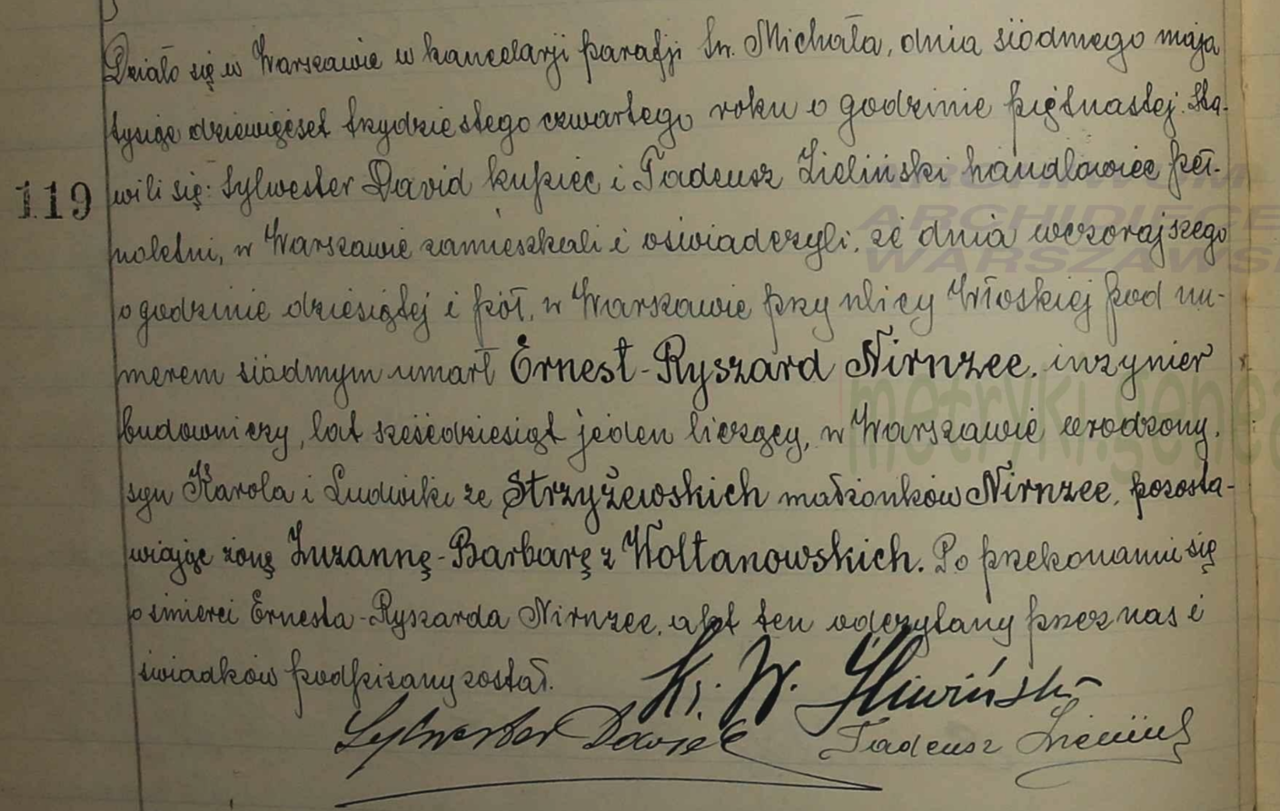 Działo się w Warszawie w kancelarji parafji Św. Michała, dnia siódmego maja
tysiąc dziewięćset trzydziestego czwartego roku o godzinie piętnastej. Sta-
119
wili się: Sylwester David kupiec i Tadeusz Zieliński handlowiec peł-
noletni, w Warszawie zamieszkali i oświadczyli, że dnia wczorajszego
o godzinie dziesiątej i pół, w Warszawie przy ulicy Włoskiej pod nu-
merem siódmym umarł Ernest-Ryszard Nirnzee, inżynier
budowniczy, lat sześćdziesiąt jeden liczący, w Warszawie urodzony,
syn Karola i Ludwiki ze Strzyżewskich małżonków Nirnzee, pozosta-
wiając żonę Zuzannę-Barbarę z Wołtanowskich. Po przekonaniu się
o śmierci Ernesta-Ryszarda Nirnzee, akt ten odczytany przez nas i
świadków podpisany został.
Ks. W. Śliwiński
Sylwester Dawid Tadeusz Zieliński
ARCHIWUM
ARCHIDIECE
WARSZAWS
metryki.gene